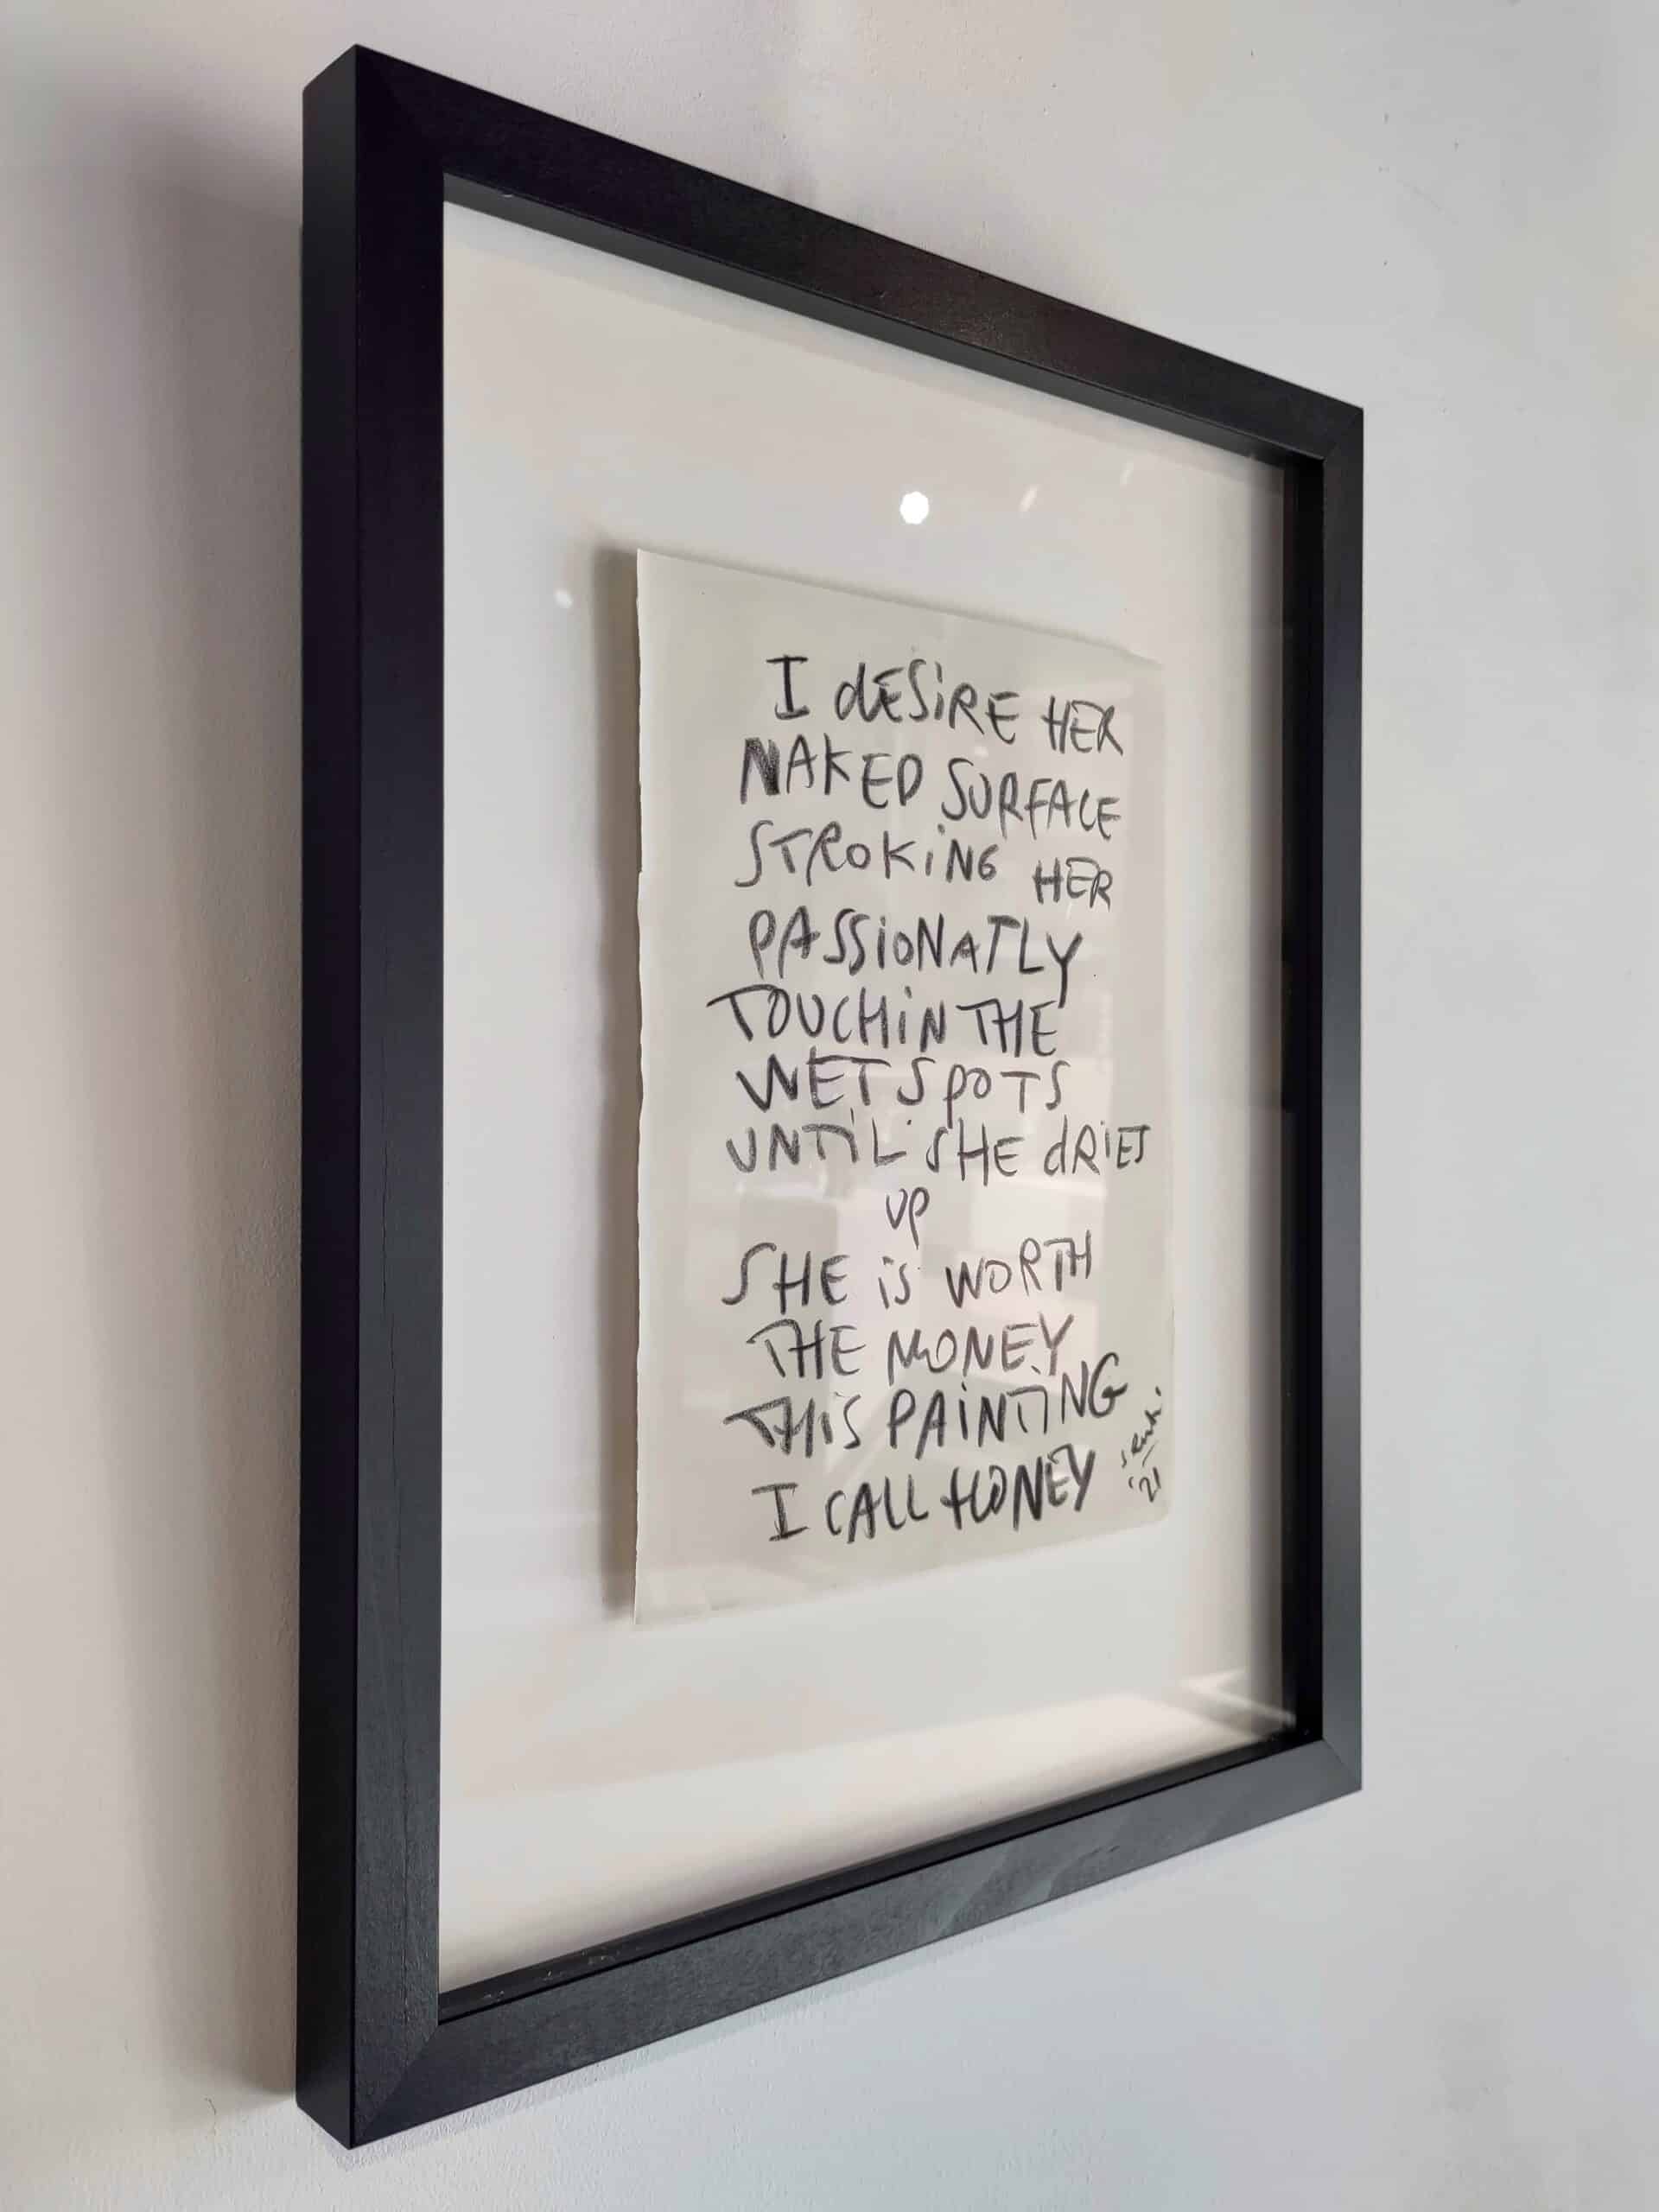 I dESiRE HER
NAKED SURFACE
STROKiNG HER
PASSiONATLY
TOUCHiN THE
WET SPOTS
UNTiL SHE dRiES
UP
SHE iS WORTH
THE MONEY
THiS PAiNTiNG
I CALL HONEY
'21